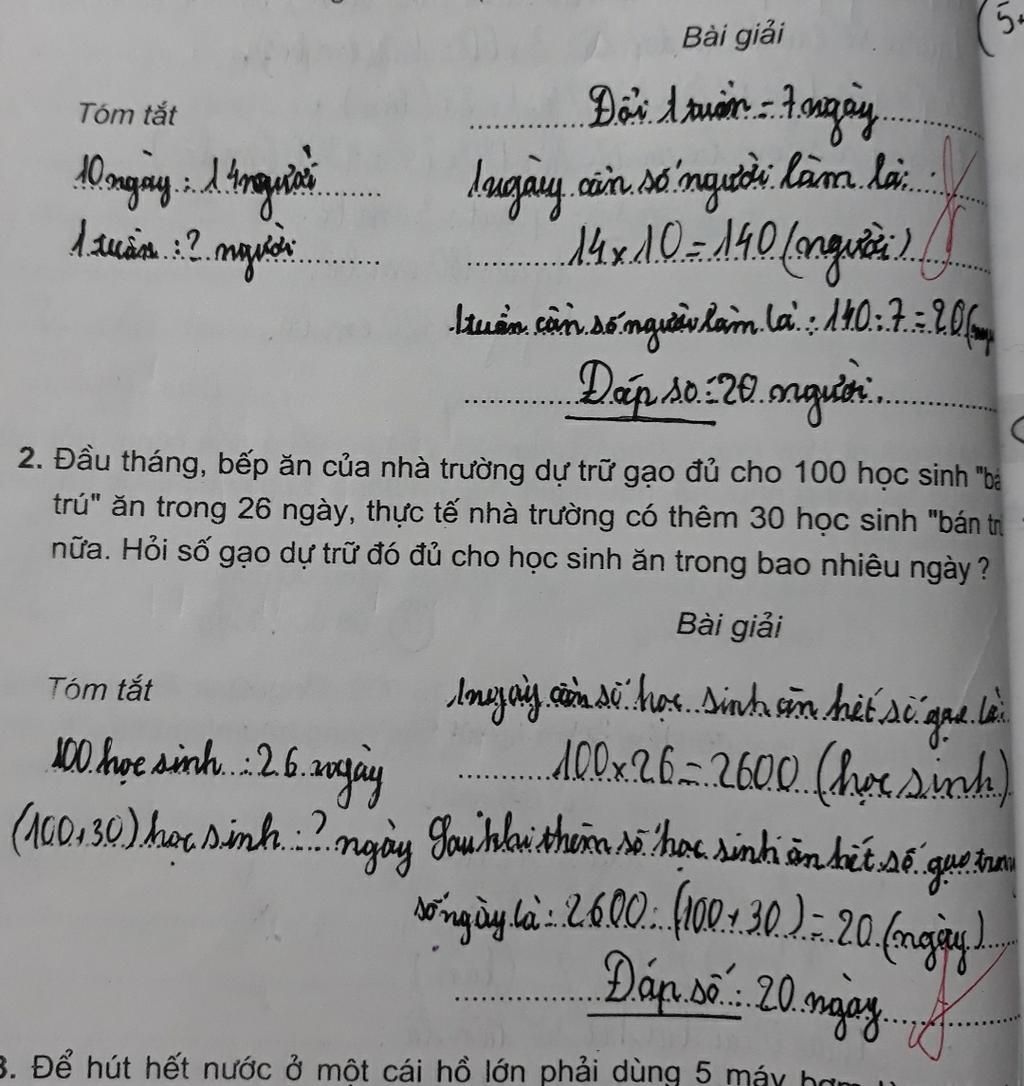 (5+
Bài giải
Tóm tắt
Đổi 1 tuần = 7 ngày
10 ngày : 14 người
1 ngày cần số người làm là:
1 tuần : ? người
14 x 10 = 140 (người)
1 tuần cần số người làm là : 140 : 7 = 20 (
Đáp số : 20 người.
2. Đầu tháng, bếp ăn của nhà trường dự trữ gạo đủ cho 100 học sinh "bá
trú" ăn trong 26 ngày, thực tế nhà trường có thêm 30 học sinh "bán tr
nữa. Hỏi số gạo dự trữ đó đủ cho học sinh ăn trong bao nhiêu ngày ?
Bài giải
Tóm tắt
1 ngày cần số học sinh ăn hết số gạo là:
100 học sinh : 26 ngày
100 x 26 = 2600 (học sinh)
(100+30) học sinh : ? ngày
Sau khi thêm số học sinh ăn hết số gạo trong
số ngày là : 2600 : (100 + 30) = 20 (ngày)
Đáp số : 20 ngày
3. Để hút hết nước ở một cái hồ lớn phải dùng 5 máy bơm